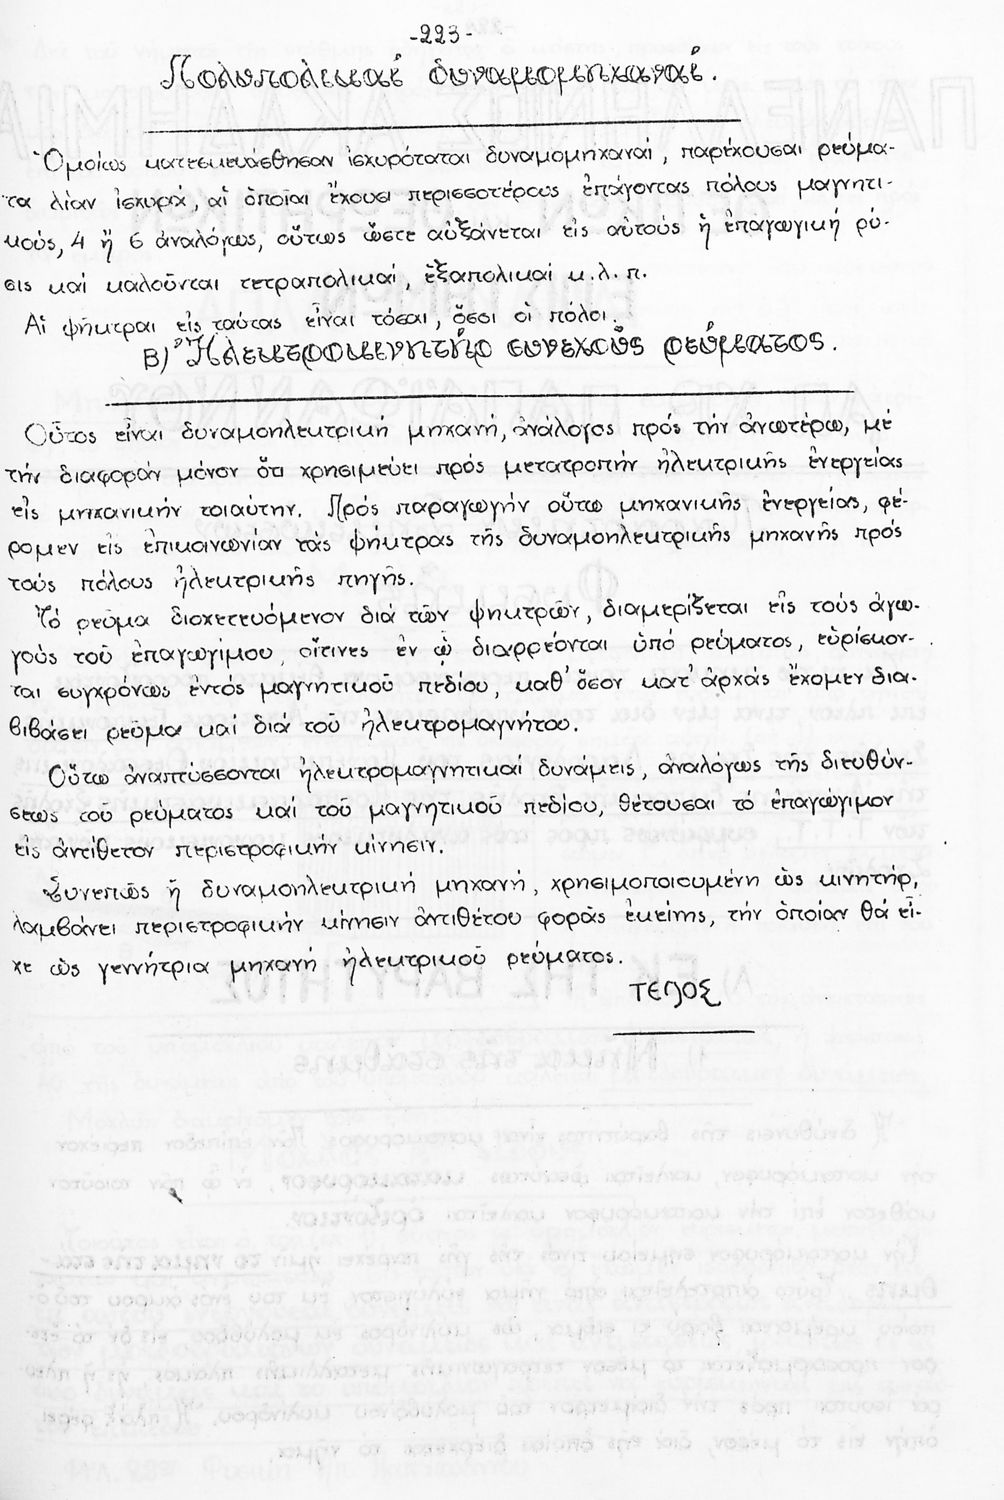 -223-
Πολυπολικαί δυναμομηχαναί.
Ὁμοίως κατεσκευάσθησαν ἰσχυρόταται δυναμομηχαναί, παρέχουσαι ρεύμα-
τα λίαν ἰσχυρά, αἱ ὁποῖαι ἔχουσι περισσοτέρους ἐπάγοντας πόλους μαγνητι-
κούς, 4 ἤ 6 ἀναλόγως, οὕτως ὥστε αὐξάνεται εἰς αὐτούς ἡ ἐπαγωγική ρύ-
σις καί καλοῦνται τετραπολικαί, ἑξαπολικαί κ.λ.π.
Αἱ ψῆκτραι εἰς ταύτας εἶναι τόσαι, ὅσοι οἱ πόλοι.
Β) Ἠλεκτροκινητήρ συνεχοῦς ρεύματος.
Οὗτος εἶναι δυναμοηλεκτρική μηχανή, ἀνάλογος πρός τήν ἀνωτέρω, μέ
τήν διαφοράν μόνον ὅτι χρησιμεύει πρός μετατροπήν ἠλεκτρικῆς ἐνεργείας
εἰς μηχανικήν τοιαύτην. Πρός παραγωγήν οὕτω μηχανικῆς ἐνεργείας, φέ-
ρομεν εἰς ἐπικοινωνίαν τάς ψήκτρας τῆς δυναμοηλεκτρικῆς μηχανῆς πρός
τούς πόλους ἠλεκτρικῆς πηγῆς.
Τό ρεῦμα διοχετευόμενον διά τῶν ψηκτρῶν, διαμερίζεται εἰς τούς ἀγω-
γούς τοῦ ἐπαγωγίμου, οἵτινες ἐν ᾧ διαρρέονται ὑπό ρεύματος, εὑρίσκον-
ται συγχρόνως ἐντός μαγνητικοῦ πεδίου, καθ' ὅσον κατ' ἀρχάς ἔχομεν δια-
βιβάσει ρεῦμα καί διά τοῦ ἠλεκτρομαγνήτου.
Οὕτω ἀναπτύσσονται ἠλεκτρομαγνητικαί δυνάμεις, ἀναλόγως τῆς διευθύν-
σεως τοῦ ρεύματος καί τοῦ μαγνητικοῦ πεδίου, θέτουσαι τό ἐπαγώγιμον
εἰς ἀντίθετον περιστροφικήν κίνησιν.
Συνεπῶς ἡ δυναμοηλεκτρική μηχανή, χρησιμοποιουμένη ὡς κινητήρ,
λαμβάνει περιστροφικήν κίνησιν ἀντιθέτου φορᾶς ἐκείνης, τήν ὁποίαν θά εἶ-
χε ὡς γεννήτρια μηχανή ἠλεκτρικοῦ ρεύματος.
ΤΕΛΟΣ